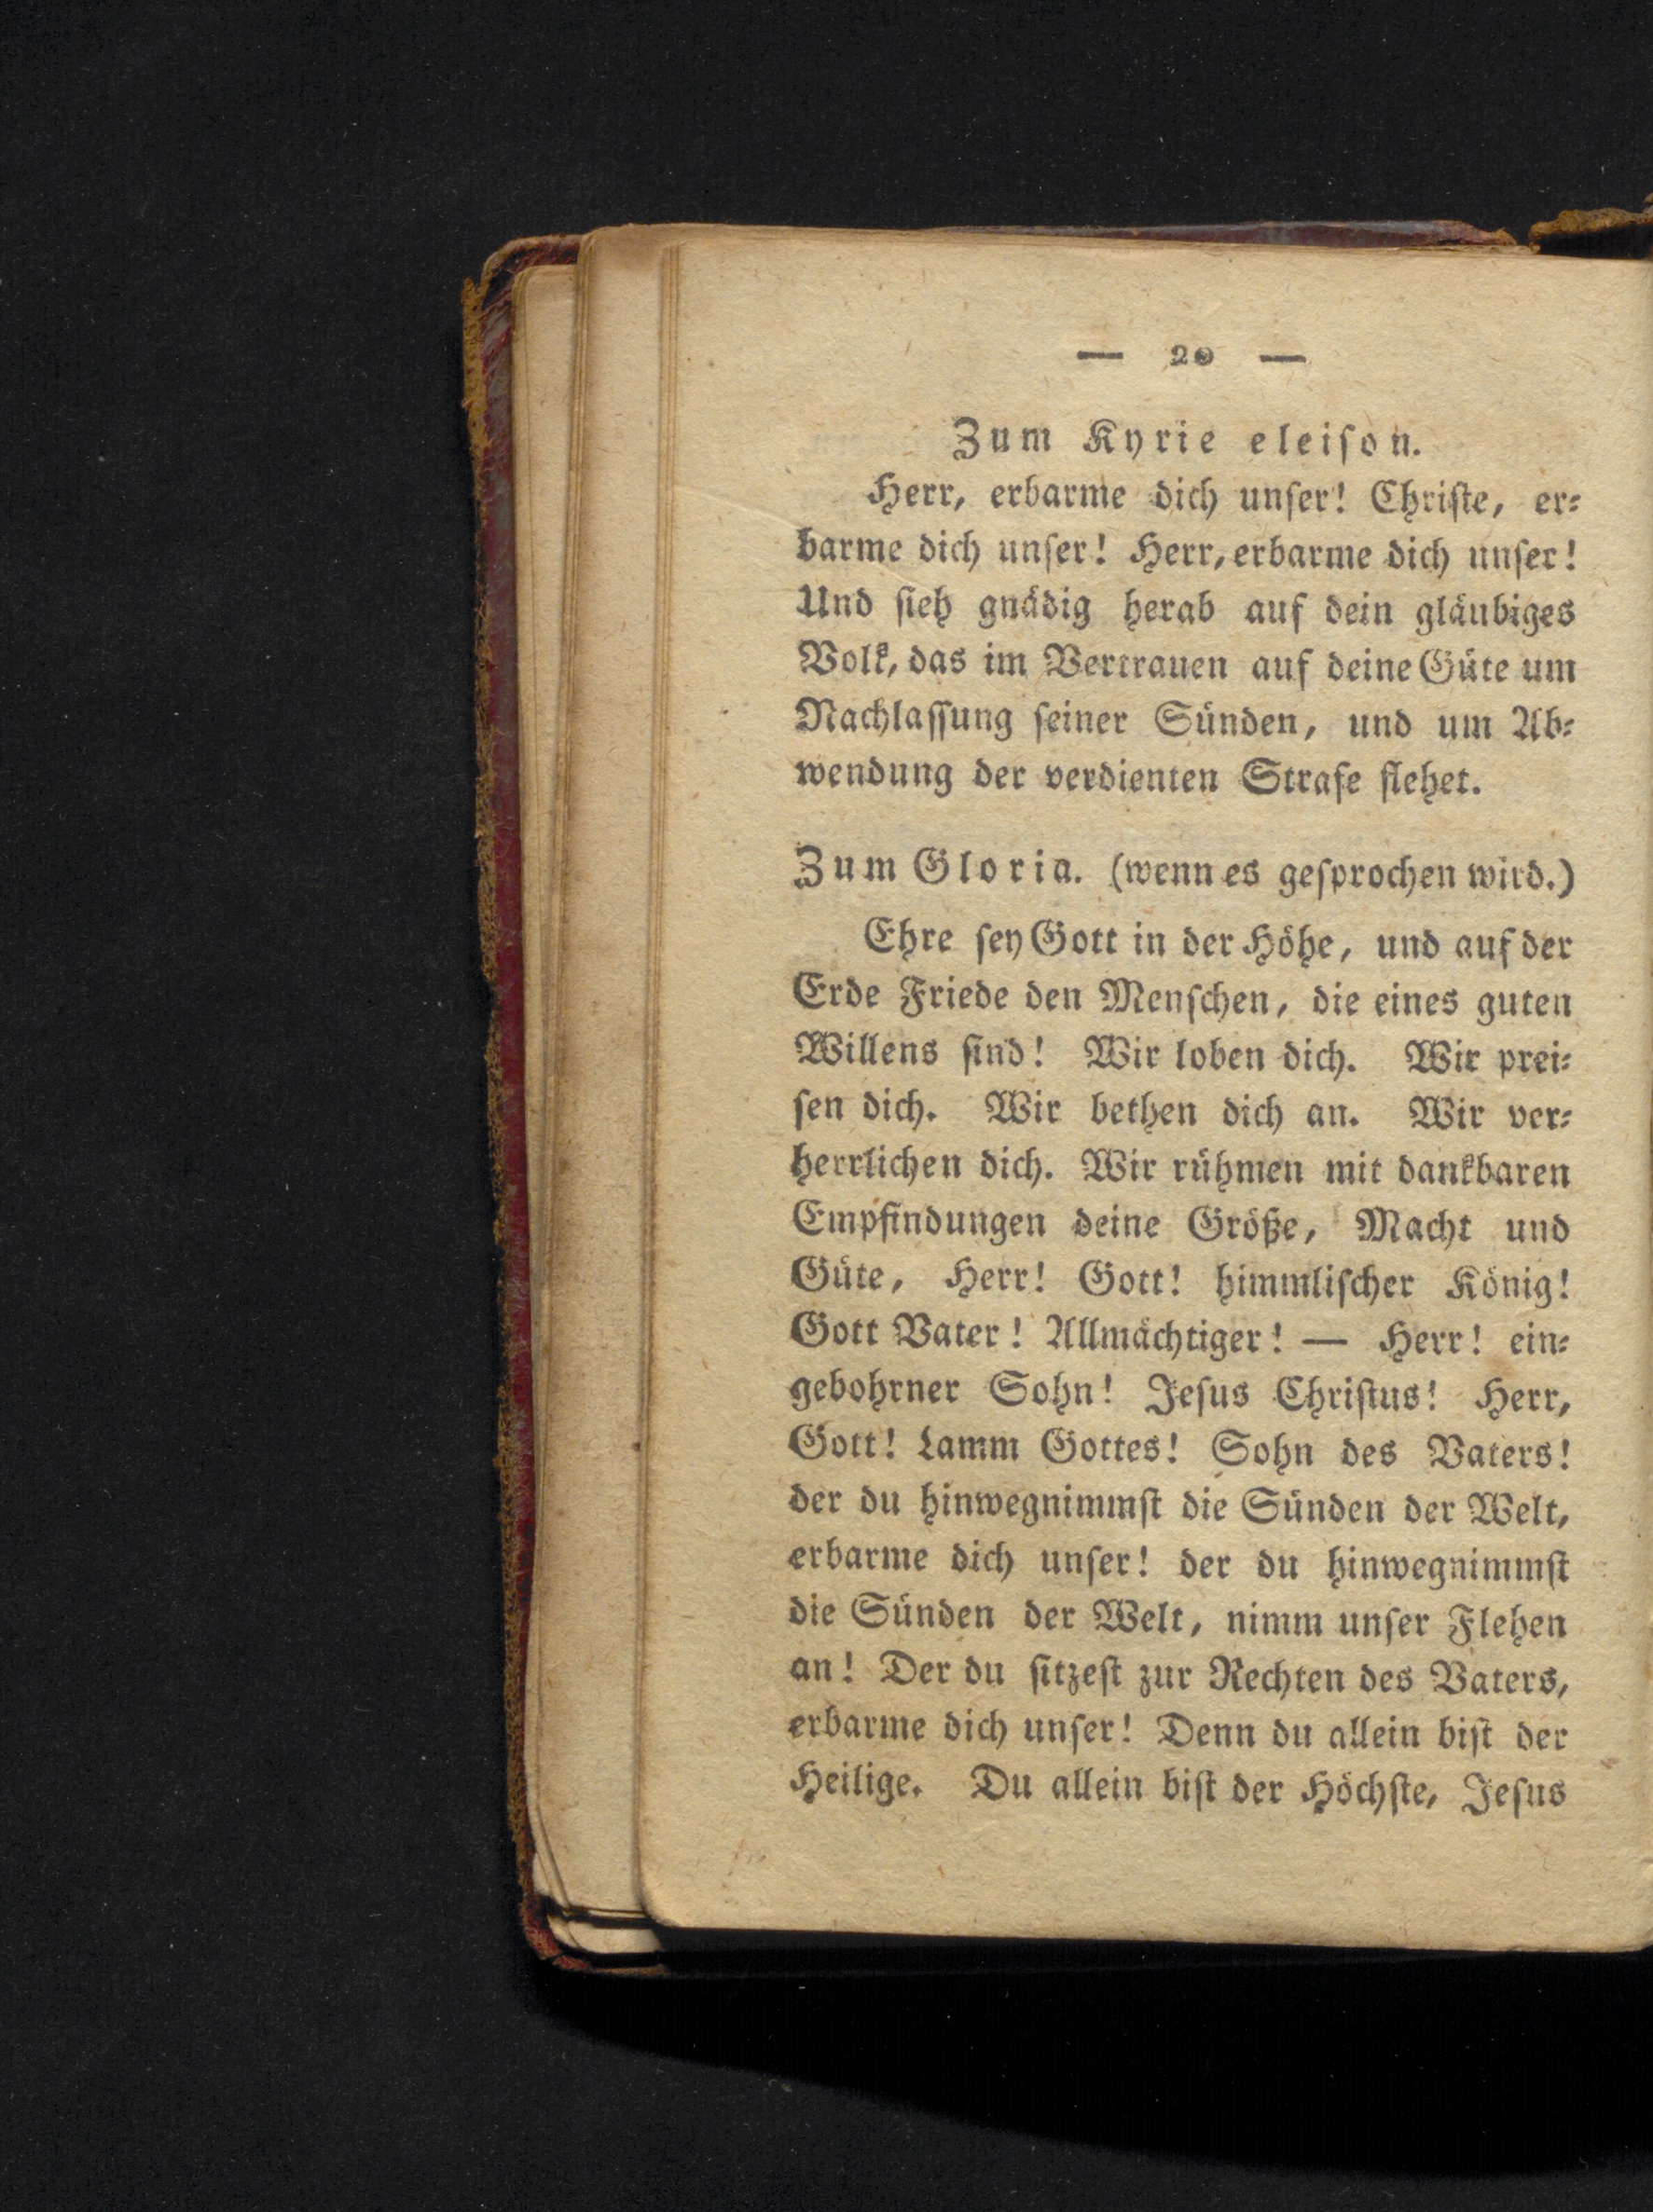 — 20 —
Zum Kyrie eleiſon.
Herr, erbarme dich unſer! Chriſte, er⸗
barme dich unſer! Herr, erbarme dich unſer!
Und ſieh gnädig herab auf dein gläubiges
Volk, das im Vertrauen auf deine Güte um
Nachlaſſung ſeiner Sünden, und um Ab⸗
wendung der verdienten Strafe flehet.
Zum Gloria. (wenn es geſprochen wird.)
Ehre ſey Gott in der Höhe, und auf der
Erde Friede den Menſchen, die eines guten
Willens ſind! Wir loben dich. Wir prei⸗
ſen dich. Wir bethen dich an. Wir ver⸗
herrlichen dich. Wir rühmen mit dankbaren
Empfindungen deine Größe, Macht und
Güte, Herr! Gott! himmliſcher König!
Gott Vater! Allmächtiger! — Herr! ein⸗
gebohrner Sohn! Jeſus Chriſtus! Herr,
Gott! Lamm Gottes! Sohn des Vaters!
der du hinwegnimmſt die Sünden der Welt,
erbarme dich unſer! der du hinwegnimmſt
die Sünden der Welt, nimm unſer Flehen
an! Der du ſitzeſt zur Rechten des Vaters,
erbarme dich unſer! Denn du allein biſt der
Heilige. Du allein biſt der Höchſte, Jeſus